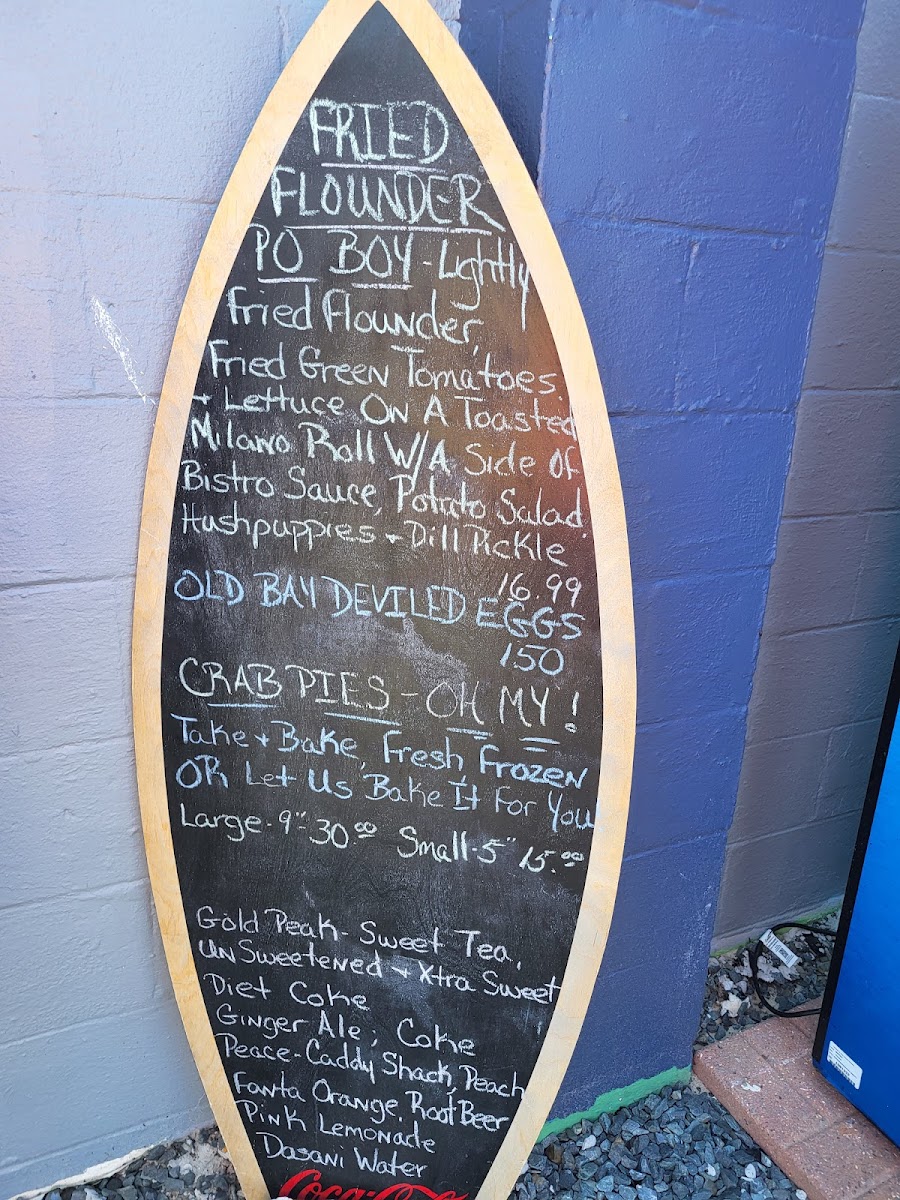 FRIED
FLOUNDER
PO BOY - Lightly
Fried Flounder,
Fried Green Tomatoes
+ Lettuce On A Toasted
Milano Roll W/A Side Of
Bistro Sauce, Potato Salad
Hushpuppies + Dill Pickle
16.99
OLD BAY DEVILED EGGS
1.50
CRAB PIES - OH MY!
Take + Bake, Fresh Frozen
OR Let Us Bake It For You
Large - 9" - 30.00 Small - 5" 15.00
Gold Peak - Sweet Tea,
UnSweetened + Xtra Sweet
Diet Coke
Ginger Ale; Coke
Peace - Caddy Shack, Peach
Fanta Orange, Root Beer
Pink Lemonade
Dasani Water
Coca-Cola